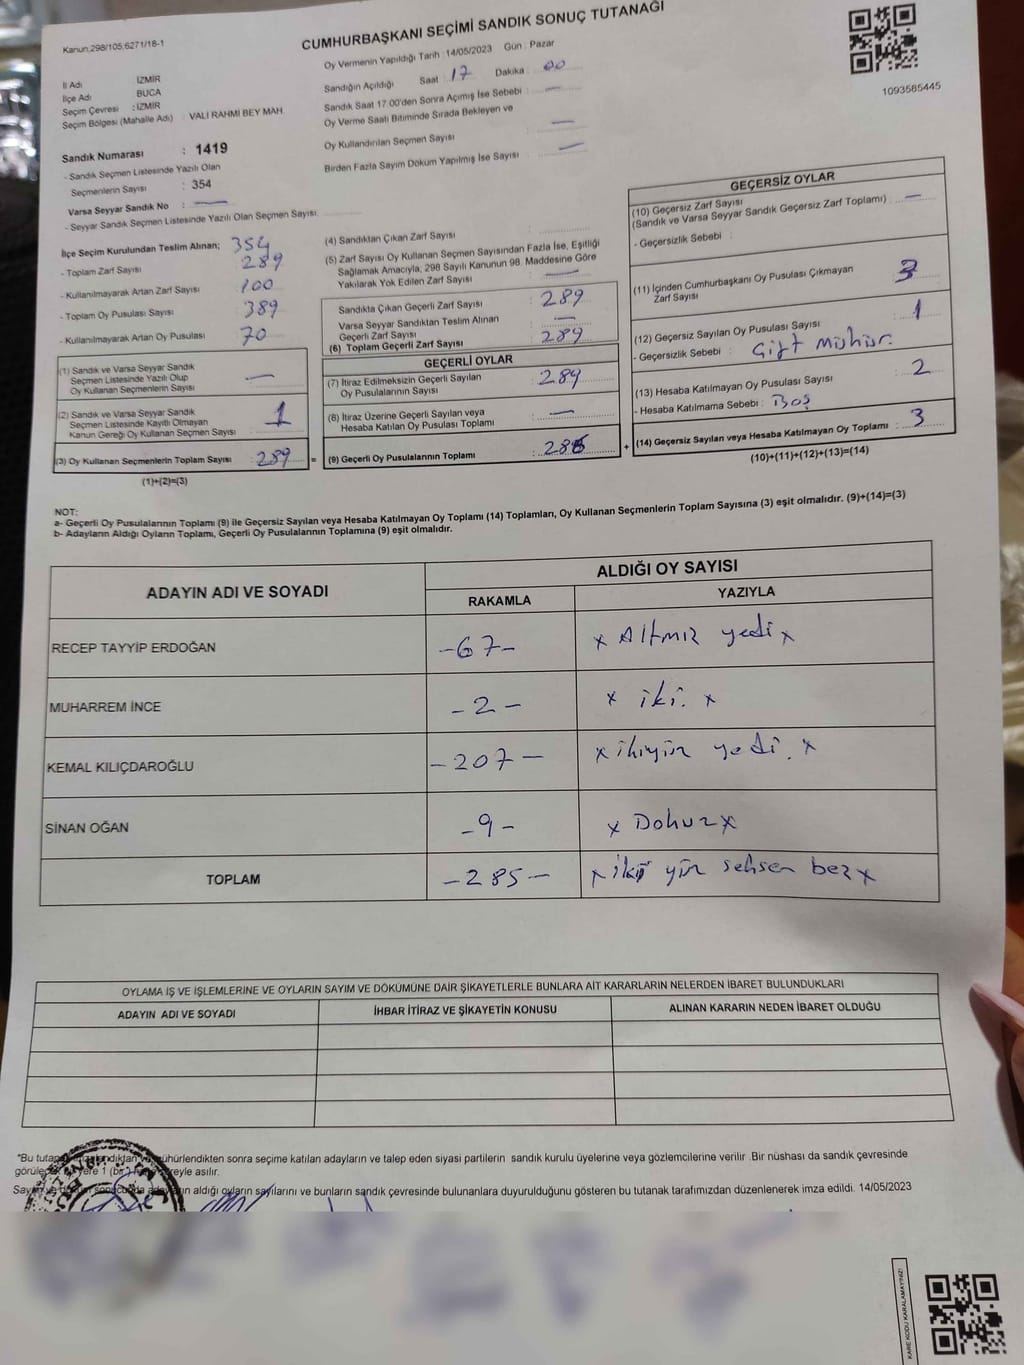 Kanun:298/105,6271/18-1
CUMHURBAŞKANI SEÇİMİ SANDIK SONUÇ TUTANAĞI
Oy Vermenin Yapıldığı Tarih : 14/05/2023 Gün : Pazar
İl Adı İZMİR
İlçe Adı BUCA
Seçim Çevresi : İZMİR
Seçim Bölgesi (Mahalle Adı) : VALİ RAHMİ BEY MAH.
Sandığın Açıldığı Saat : 17 Dakika : 00
Sandık Saat 17:00'den Sonra Açımış İse Sebebi : —
Oy Verme Saati Bitiminde Sırada Bekleyen ve
Oy Kullandırılan Seçmen Sayısı : —
Birden Fazla Sayım Döküm Yapılmış İse Sayısı : —
1093585445
Sandık Numarası : 1419
- Sandık Seçmen Listesinde Yazılı Olan
Seçmenlerin Sayısı : 354
Varsa Seyyar Sandık No : —
- Seyyar Sandık Seçmen Listesinde Yazılı Olan Seçmen Sayısı:
İlçe Seçim Kurulundan Teslim Alınan; 354
- Toplam Zarf Sayısı 289
- Kullanılmayarak Artan Zarf Sayısı : 100
- Toplam Oy Pusulası Sayısı : 389
- Kullanılmayarak Artan Oy Pusulası : 70
(1) Sandık ve Varsa Seyyar Sandık
Seçmen Listesinde Yazılı Olup
Oy Kullanan Seçmenlerin Sayısı : —
(2) Sandık ve Varsa Seyyar Sandık
Seçmen Listesinde Kayıtlı Olmayan
Kanun Gereği Oy Kullanan Seçmen Sayısı : 1
(3) Oy Kullanan Seçmenlerin Toplam Sayısı : 289
(1)+(2)=(3)
(4) Sandıktan Çıkan Zarf Sayısı :
(5) Zarf Sayısı Oy Kullanan Seçmen Sayısından Fazla İse, Eşitliği
Sağlamak Amacıyla, 298 Sayılı Kanunun 98. Maddesine Göre
Yakılarak Yok Edilen Zarf Sayısı : —
Sandıkta Çıkan Geçerli Zarf Sayısı : 289
Varsa Seyyar Sandıktan Teslim Alınan
Geçerli Zarf Sayısı : —
(6) Toplam Geçerli Zarf Sayısı : 289
GEÇERLİ OYLAR
(7) İtiraz Edilmeksizin Geçerli Sayılan
Oy Pusulalarının Sayısı : 289
(8) İtiraz Üzerine Geçerli Sayılan veya
Hesaba Katılan Oy Pusulası Toplamı : —
= (9) Geçerli Oy Pusulalarının Toplamı :
GEÇERSİZ OYLAR
(10) Geçersiz Zarf Sayısı
(Sandık ve Varsa Seyyar Sandık Geçersiz Zarf Toplamı) : —
- Geçersizlik Sebebi :
(11) İçinden Cumhurbaşkanı Oy Pusulası Çıkmayan
Zarf Sayısı : 3
(12) Geçersiz Sayılan Oy Pusulası Sayısı : 1
- Geçersizlik Sebebi : Çift Mühür.
(13) Hesaba Katılmayan Oy Pusulası Sayısı : 2
- Hesaba Katılmama Sebebi : Boş
+ (14) Geçersiz Sayılan veya Hesaba Katılmayan Oy Toplamı : 3
(10)+(11)+(12)+(13)=(14)
NOT:
a- Geçerli Oy Pusulalarının Toplamı (9) ile Geçersiz Sayılan veya Hesaba Katılmayan Oy Toplamı (14) Toplamları, Oy Kullanan Seçmenlerin Toplam Sayısına (3) eşit olmalıdır. (9)+(14)=(3)
b- Adayların Aldığı Oyların Toplamı, Geçerli Oy Pusulalarının Toplamına (9) eşit olmalıdır.
ADAYIN ADI VE SOYADI ALDIĞI OY SAYISI
RAKAMLA YAZIYLA
RECEP TAYYİP ERDOĞAN -67- x Altmış yedi x
MUHARREM İNCE -2- x iki. x
KEMAL KILIÇDAROĞLU -207- x ikiyüz yedi. x
SİNAN OĞAN -9- x Dokuz x
TOPLAM -285- x iki yüz seksen beş x
OYLAMA İŞ VE İŞLEMLERİNE VE OYLARIN SAYIM VE DÖKÜMÜNE DAİR ŞİKAYETLERLE BUNLARA AİT KARARLARIN NELERDEN İBARET BULUNDUKLARI
ADAYIN ADI VE SOYADI İHBAR İTİRAZ VE ŞİKAYETİN KONUSU ALINAN KARARIN NEDEN İBARET OLDUĞU
*Bu mühürlendikten sonra seçime katılan adayların ve talep eden siyasi partilerin sandık kurulu üyelerine veya gözlemcilerine verilir .Bir nüshası da sandık çevresinde
yere 1 (bir) süreyle asılır.
aldığı oyların sayılarını ve bunların sandık çevresinde bulunanlara duyurulduğunu gösteren bu tutanak tarafımızdan düzenlenerek imza edildi. 14/05/2023
KARE KODU KARALAMAYINIZ!